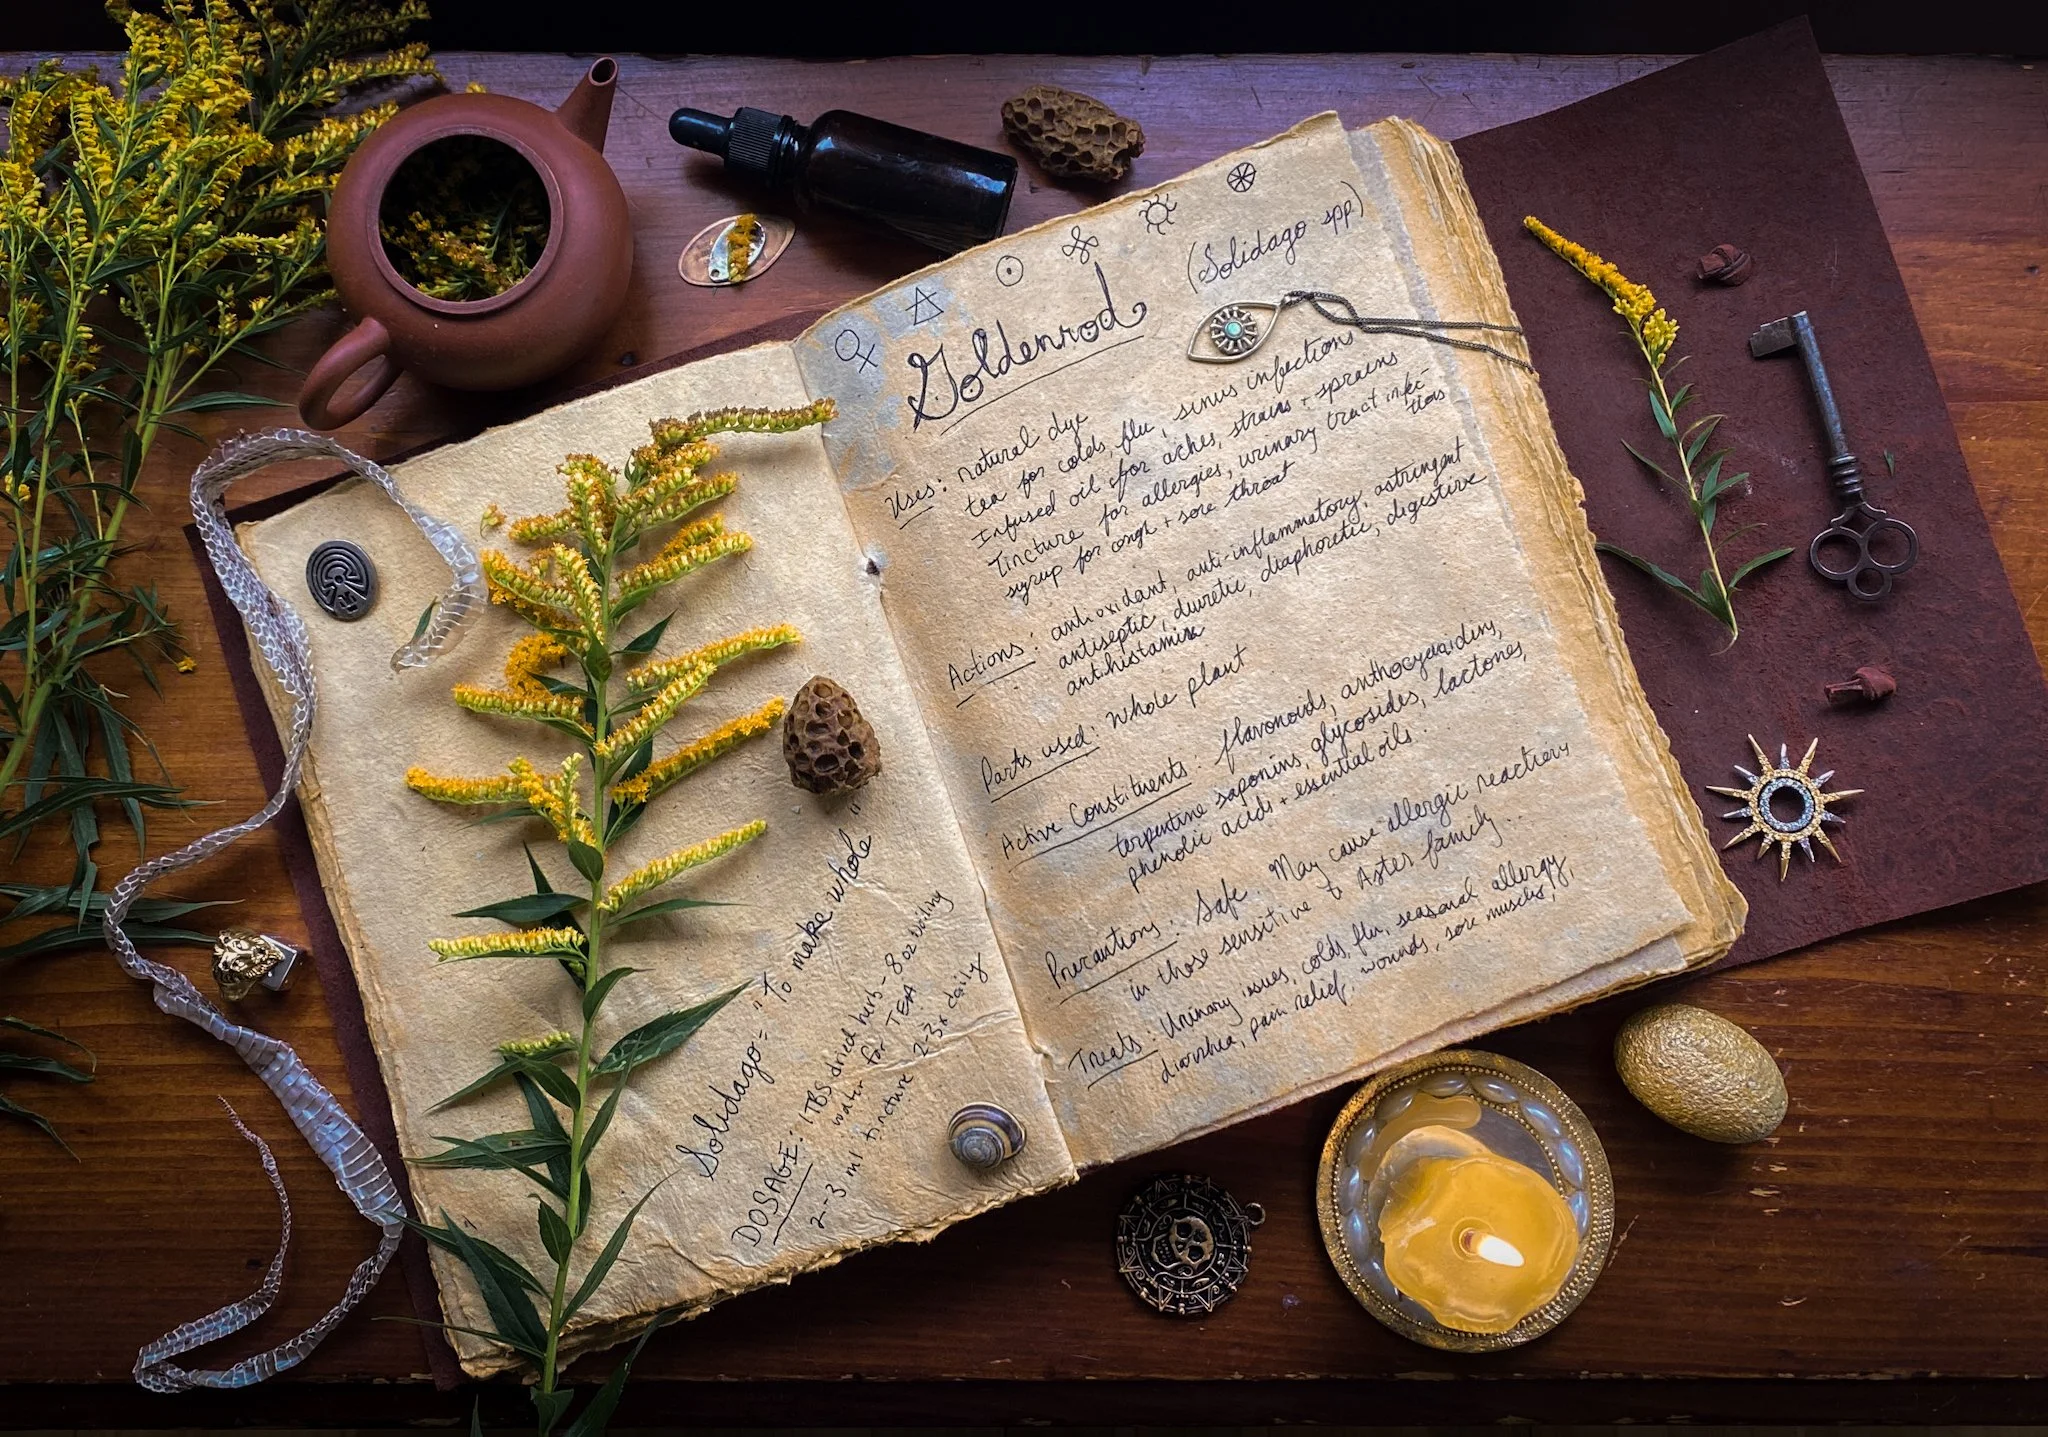 Solidago = "To make whole"
DOSAGE: 1 TBS dried herb - 8 oz boiling
water for TEA
2-3 ml tincture 2-3x daily
(Solidago spp)
Goldenrod
Uses: natural dye
tea for colds, flu, sinus infections
Infused oil for aches, strains + sprains
Tincture for allergies, urinary tract infec-
tions
syrup for cough + sore throat
Actions: antioxidant, anti-inflammatory, astringent
antiseptic, diuretic, diaphoretic, digestive
antihistamine
Parts used: Whole plant
Active Constituents: flavonoids, anthocyanidins,
terpentine saponins, glycosides, lactones,
phenolic acids + essential oils.
Precautions: Safe. May cause allergic reactions
in those sensitive to Aster family..
Treats: Urinary issues, colds, flu, seasonal allergy,
diarrhea, pain relief, wounds, sore muscles,